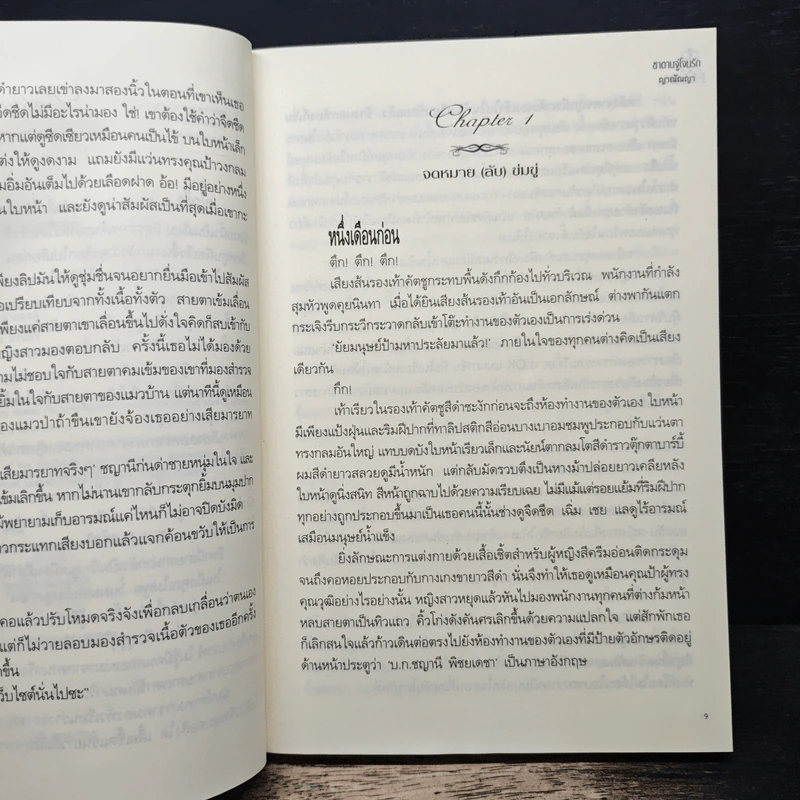 ดำยาวเลยเข่าลงมาสองนิ้วในตอนที่เขาเห็นเธอ
จืดชืดไม่มีอะไรน่ามอง ใช่! เขาต้องใช้คำว่าจืดชืด
หากแต่ดูซีดเซียวเหมือนคนเป็นไข้ บนใบหน้าเล็ก
ต่งให้ดูงดงาม แถมยังมีแว่นทรงคุณป้าวงกลม
มอิ่มอันเต็มไปด้วยเลือดฝาด อ้อ! มีอยู่อย่างหนึ่ง
นใบหน้า และยังดูน่าสัมผัสเป็นที่สุดเมื่อเขากะ
พียงลิปมันให้ดูชุ่มชื่นจนอยากยื่นมือเข้าไปสัมผัส
อเปรียบเทียบจากทั้งเนื้อทั้งตัว สายตาเข้มเลื่อน
พียงแค่สายตาเขาเลื่อนขึ้นไปดั่งใจคิดก็สบเข้ากับ
หญิงสาวมองตอบกลับ ครั้งนี้เธอไม่ได้มองด้วย
ามไม่ชอบใจกับสายตาคมเข้มของเขาที่มองสำรวจ
ยิ้มในใจกับสายตาของแมวบ้าน แต่นาทีนี้ดูเหมือน
องแมวป่าถ้าขืนเขายังจ้องเธออย่างเสียมารยาท
เสียมารยาทจริงๆ' ชญานีก่นด่าชายหนุ่มในใจ และ
เข้มเลิกขึ้น หากไม่นานเขากลับกระตุกยิ้มบนมุมปาก
มัพยายามเก็บอารมณ์แค่ไหนก็ไม่อาจปิดบังมิด
าวกระแทกเสียงบอกแล้วแจกค้อนขวับให้เป็นการ
คอแล้วปรับโหมดจริงจังเพื่อกลบเกลื่อนว่าตนเอง
แต่ก็ไม่วายลอบมองสำรวจเนื้อตัวของเธออีกครั้ง
าขึ้น
ว็บไซต์นั่นไปซะ"
ซาตานจู่โจมรัก
ญาณัณญา
Chapter 1
จดหมาย (ลับ) ข่มขู่
หนึ่งเดือนก่อน
ตึก! ตึก! ตึก!
เสียงส้นรองเท้าคัตชูกระทบพื้นดังกึกก้องไปทั่วบริเวณ พนักงานที่กำลัง
สุมหัวพูดคุยนินทา เมื่อได้ยินเสียงส้นรองเท้าอันเป็นเอกลักษณ์ ต่างพากันแตก
กระเจิงรีบกระวีกระวาดกลับเข้าโต๊ะทำงานของตัวเองเป็นการเร่งด่วน
'ยัยมนุษย์ป้ามหาประลัยมาแล้ว!' ภายในใจของทุกคนต่างคิดเป็นเสียง
เดียวกัน
กึก!
เท้าเรียวในรองเท้าคัตชูสีดำชะงักก่อนจะถึงห้องทำงานของตัวเอง ใบหน้า
มีเพียงแป้งฝุ่นและริมฝีปากที่ทาลิปสติกสีอ่อนบางเบาอมชมพูประกอบกับแว่นตา
ทรงกลมอันใหญ่ แทบบดบังใบหน้าเรียวเล็กและนัยน์ตากลมโตสีดำราวตุ๊กตาบาร์บี้
ผมสีดำยาวสลวยดูมีน้ำหนัก แต่กลับมัดรวบตึงเป็นหางม้าปล่อยยาวเคลียหลัง
ใบหน้าดูนิ่งสนิท สีหน้าถูกฉาบไปด้วยความเรียบเฉย ไม่มีแม้แต่รอยแย้มที่ริมฝีปาก
ทุกอย่างถูกประกอบขึ้นมาเป็นเธอคนนี้นั้นช่างดูจืดชืด เฉิ่ม เชย แลดูไร้อารมณ์
เสมือนมนุษย์น้ำแข็ง
ยิ่งลักษณะการแต่งกายด้วยเสื้อเชิ้ตสำหรับผู้หญิงสีครีมอ่อนติดกระดุม
จนถึงคอหอยประกอบกับกางเกงขายาวสีดำ นั่นจึงทำให้เธอดูเหมือนคุณป้าผู้ทรง
คุณวุฒิอย่างไรอย่างนั้น หญิงสาวหยุดแล้วหันไปมองพนักงานทุกคนที่ต่างก้มหน้า
หลบสายตาเป็นทิวแถว คิ้วโก่งดังคันศรเลิกขึ้นด้วยความแปลกใจ แต่สักพักเธอ
ก็เลิกสนใจแล้วก้าวเดินต่อตรงไปยังห้องทำงานของตัวเองที่มีป้ายตัวอักษรติดอยู่
ด้านหน้าประตูว่า 'บ.ก.ชญานี พิชยเดชา' เป็นภาษาอังกฤษ
9